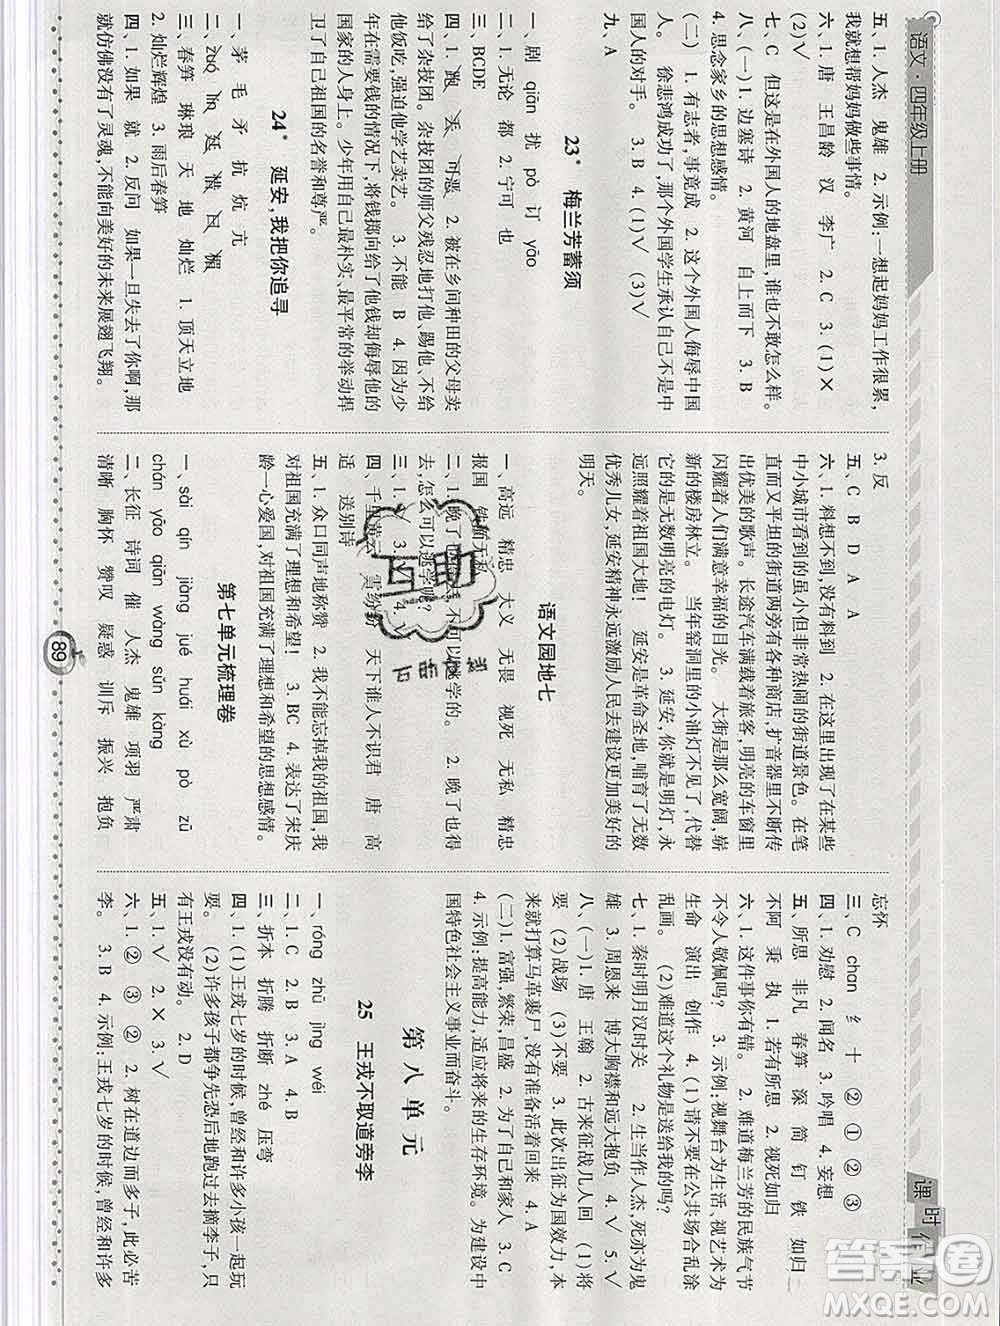 语文·四年级上册
课时作业
五、1.人杰 鬼雄 2.示例:一想起妈妈工作很累,
我就想帮妈妈做些事情。
六、1.唐 王昌龄 汉 李广 2.C 3.(1)×
(2)√
七、C 但这是在外国人的地盘里,谁也不敢怎么样。
八、(一)1.边塞诗 2.黄河 自上而下 3.B
4.思念家乡的思想感情。
(二)1.有志者,事竟成。 2.这个外国人侮辱中国
人。 徐悲鸿成功了,那个外国学生承认自己不是中
国人的对手。 3.B 4.(1)√ (3)√
九、A
23* 梅兰芳蓄须
一、剧 qiān 扰 pò 订 yāo
二、1.无论 都 2.宁可 也
三、BCDE
四、1.跑 丢 可恶 2.被在乡间种田的父母卖
给了杂技团。杂技团的师父残忍地打他、踢他、不给
他饭吃,强迫他学艺卖艺。 3.不能 B 4.因为少
年在需要钱的情况下,将钱掷向给了他钱却侮辱他的
国家的人身上。少年用自己最朴实、最平常的举动捍
卫了自己祖国的名誉和尊严。
24* 延安,我把你追寻
一、茅 毛 矛 抗 炕 亢
三、春笋 琳琅 天 地 灿烂 1.顶天立地
2.灿烂辉煌 3.雨后春笋
四、1.如果 就 2.反问 如果一旦失去了你啊,那
就仿佛没有了灵魂,不能向美好的未来展翅飞翔。
3.反
五、C B D A A
六、1.料想不到,没有料到。 2.在这里出现了在某些
中小城市看到的或少但却非常热闹的街道景色。在笔
直而又平坦的街道两旁有各种商店,扩音器里不断传
出优美的歌声。长途汽车满载着旅客,明亮的车窗里
闪耀着人们满意幸福的目光。 大街那么宽阔,崭
新的楼房林立。 当年窑洞里的小油灯不见了,代替
它的是无数明亮的电灯。 3.延安,你就是明灯,永
远照耀着祖国大地!延安是革命圣地,哺育了无数
优秀儿女,延安精神永远激励人民去建设更加美好的
明天。
语文园地七
一、高远 精忠 大义 无畏 视死 无私 精忠
报国 铁面无私
去,怎么可以逃学呢?
三、1.√ 3.√ 4.√
适 送别诗
五、1.众口同声地称赞 2.我不能忘掉我的祖国,我
对祖国充满了理想和希望! 3.BC 4.表达了宋庆
龄一心爱国,对祖国充满了理想和希望的思想感情。
第七单元梳理卷
一、sài qín jiàng jué huái xù pò zǔ
chán yāo qiān wàng sǔn kàng
二、长征 诗词 催 人杰 鬼雄 项羽 严肃
清晰 胸怀 赞叹 疑惑 训斥 振兴 抱负
忘怀
三、C chan 纟 十 ② ① ② ③
四、1.劝慰 2.闻名 3.吟唱 4.妄想
五、所思 非凡 春笋 深 简 钉 铁 如归
不阿 秉 执 1.若有所思 2.视死如归
六、1.这件事你有错。 2.难道梅兰芳的民族气节
不令人敬佩吗? 3.示例:视舞台为生活、视艺术为
生命 演出 创作 4.(1)请不要在公共场合乱涂
乱画。 (2)难道这个礼物是送给我的吗?
七、1.秦时明月汉时关 2.生当作人杰,死亦为鬼
雄 3.周恩来 博大胸襟和远大抱负 4.√ 5.√
八、(一)1.唐 王翰 2.古来征战几人回 (1)将
要 (2)战场 (3)不要 3.此次出征为国效力,本
来就打算马革裹尸,没有准备活着回来 4.A
(二)1.富强,繁荣,昌盛 2.为了自己和家人 3.C
4.示例:提高能力,适应将来的生存环境。 为建设中
国特色社会主义事业而奋斗。
第八单元
25 王戎不取道旁李
一、róng zhū jìng wéi
二、1.C 2.B 3.A 4.B
三、折本 折腾 折断 zhé 压弯
四、1.(1)王戎七岁的时候,曾经和许多小孩一起玩
耍。 (2)许多孩子都争先恐后地跑过去摘李子,只
有王戎没有动。 2.D
五、1.√ 2.× 3.√
六、1.② ③ ② 2.在道边而多子,此必苦
李。 3.B 4.示例:王戎七岁的时候,曾经和许多
89
答案圈
MXQE.COM